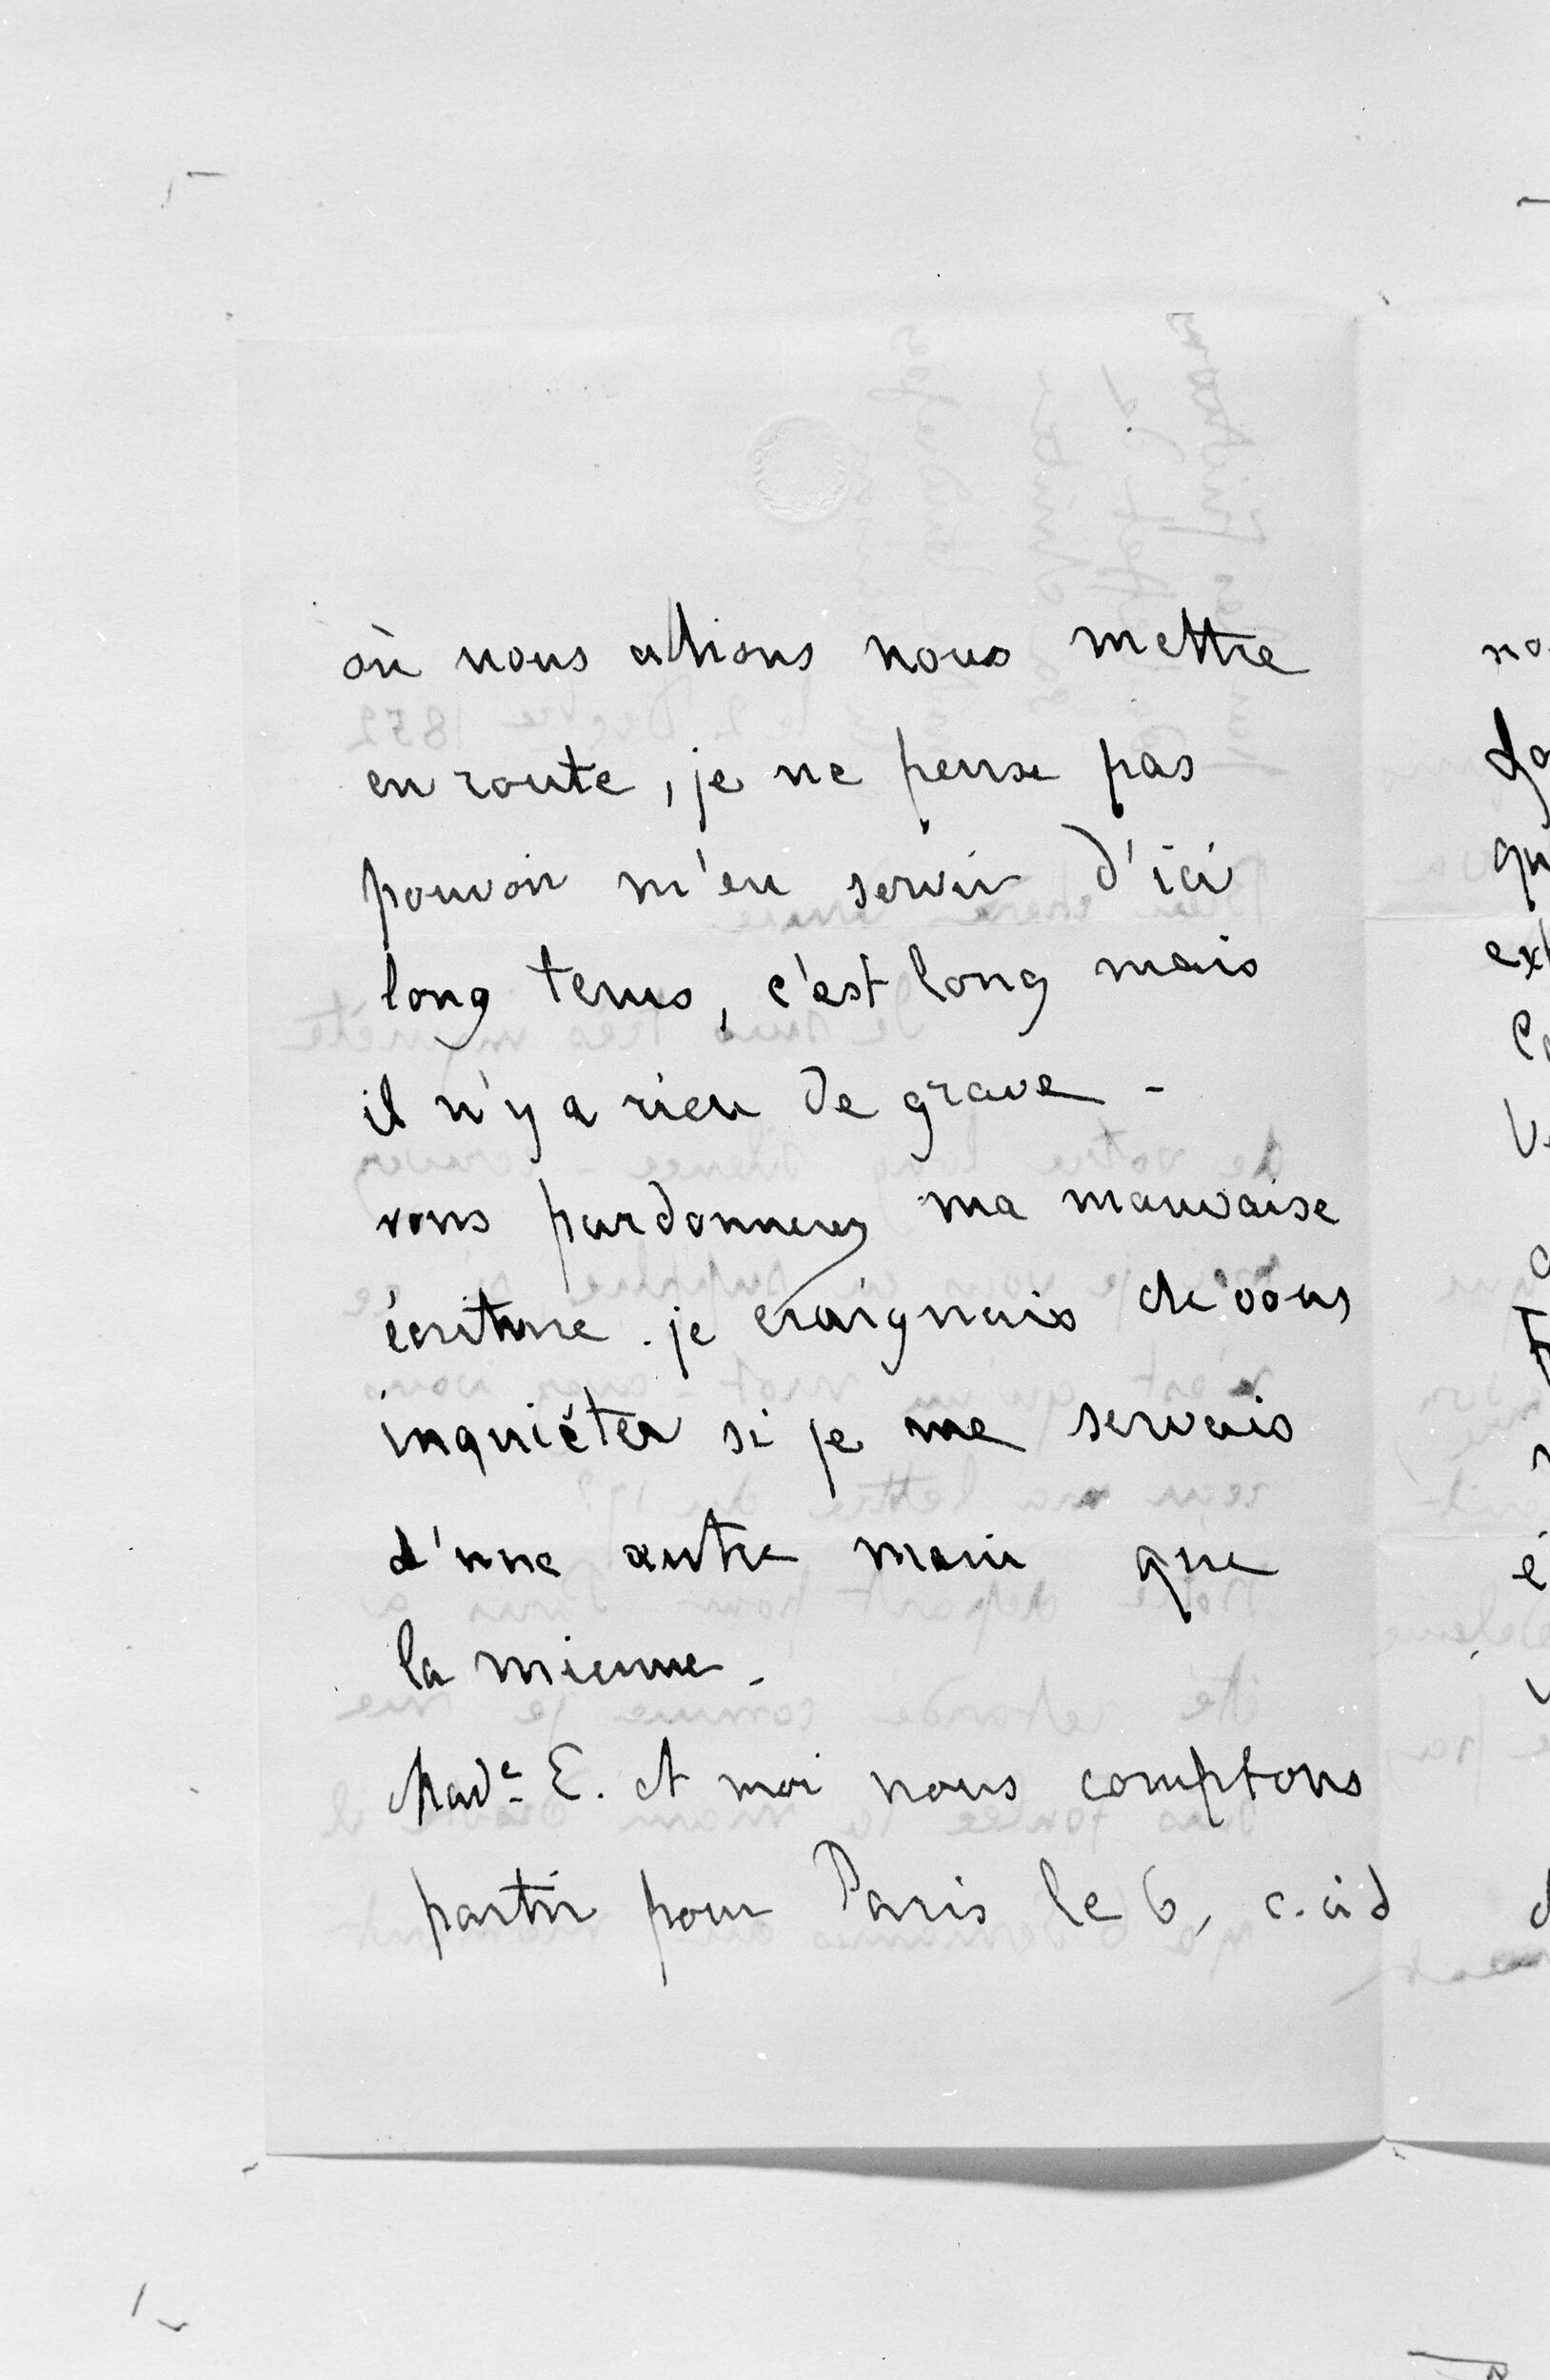 où nous allions nous mettre
en route, je ne pense pas
pouvoir m'en servir d'ici
long tems, c'est long mais
il n'y a rien de grave -
vous pardonnerez ma mauvaise
écriture. je craignais de vous
inquiéter si je me servais
d'une autre main que
la mienne.
Made E. et moi nous comptons
partir pour Paris le 6, c.à.d